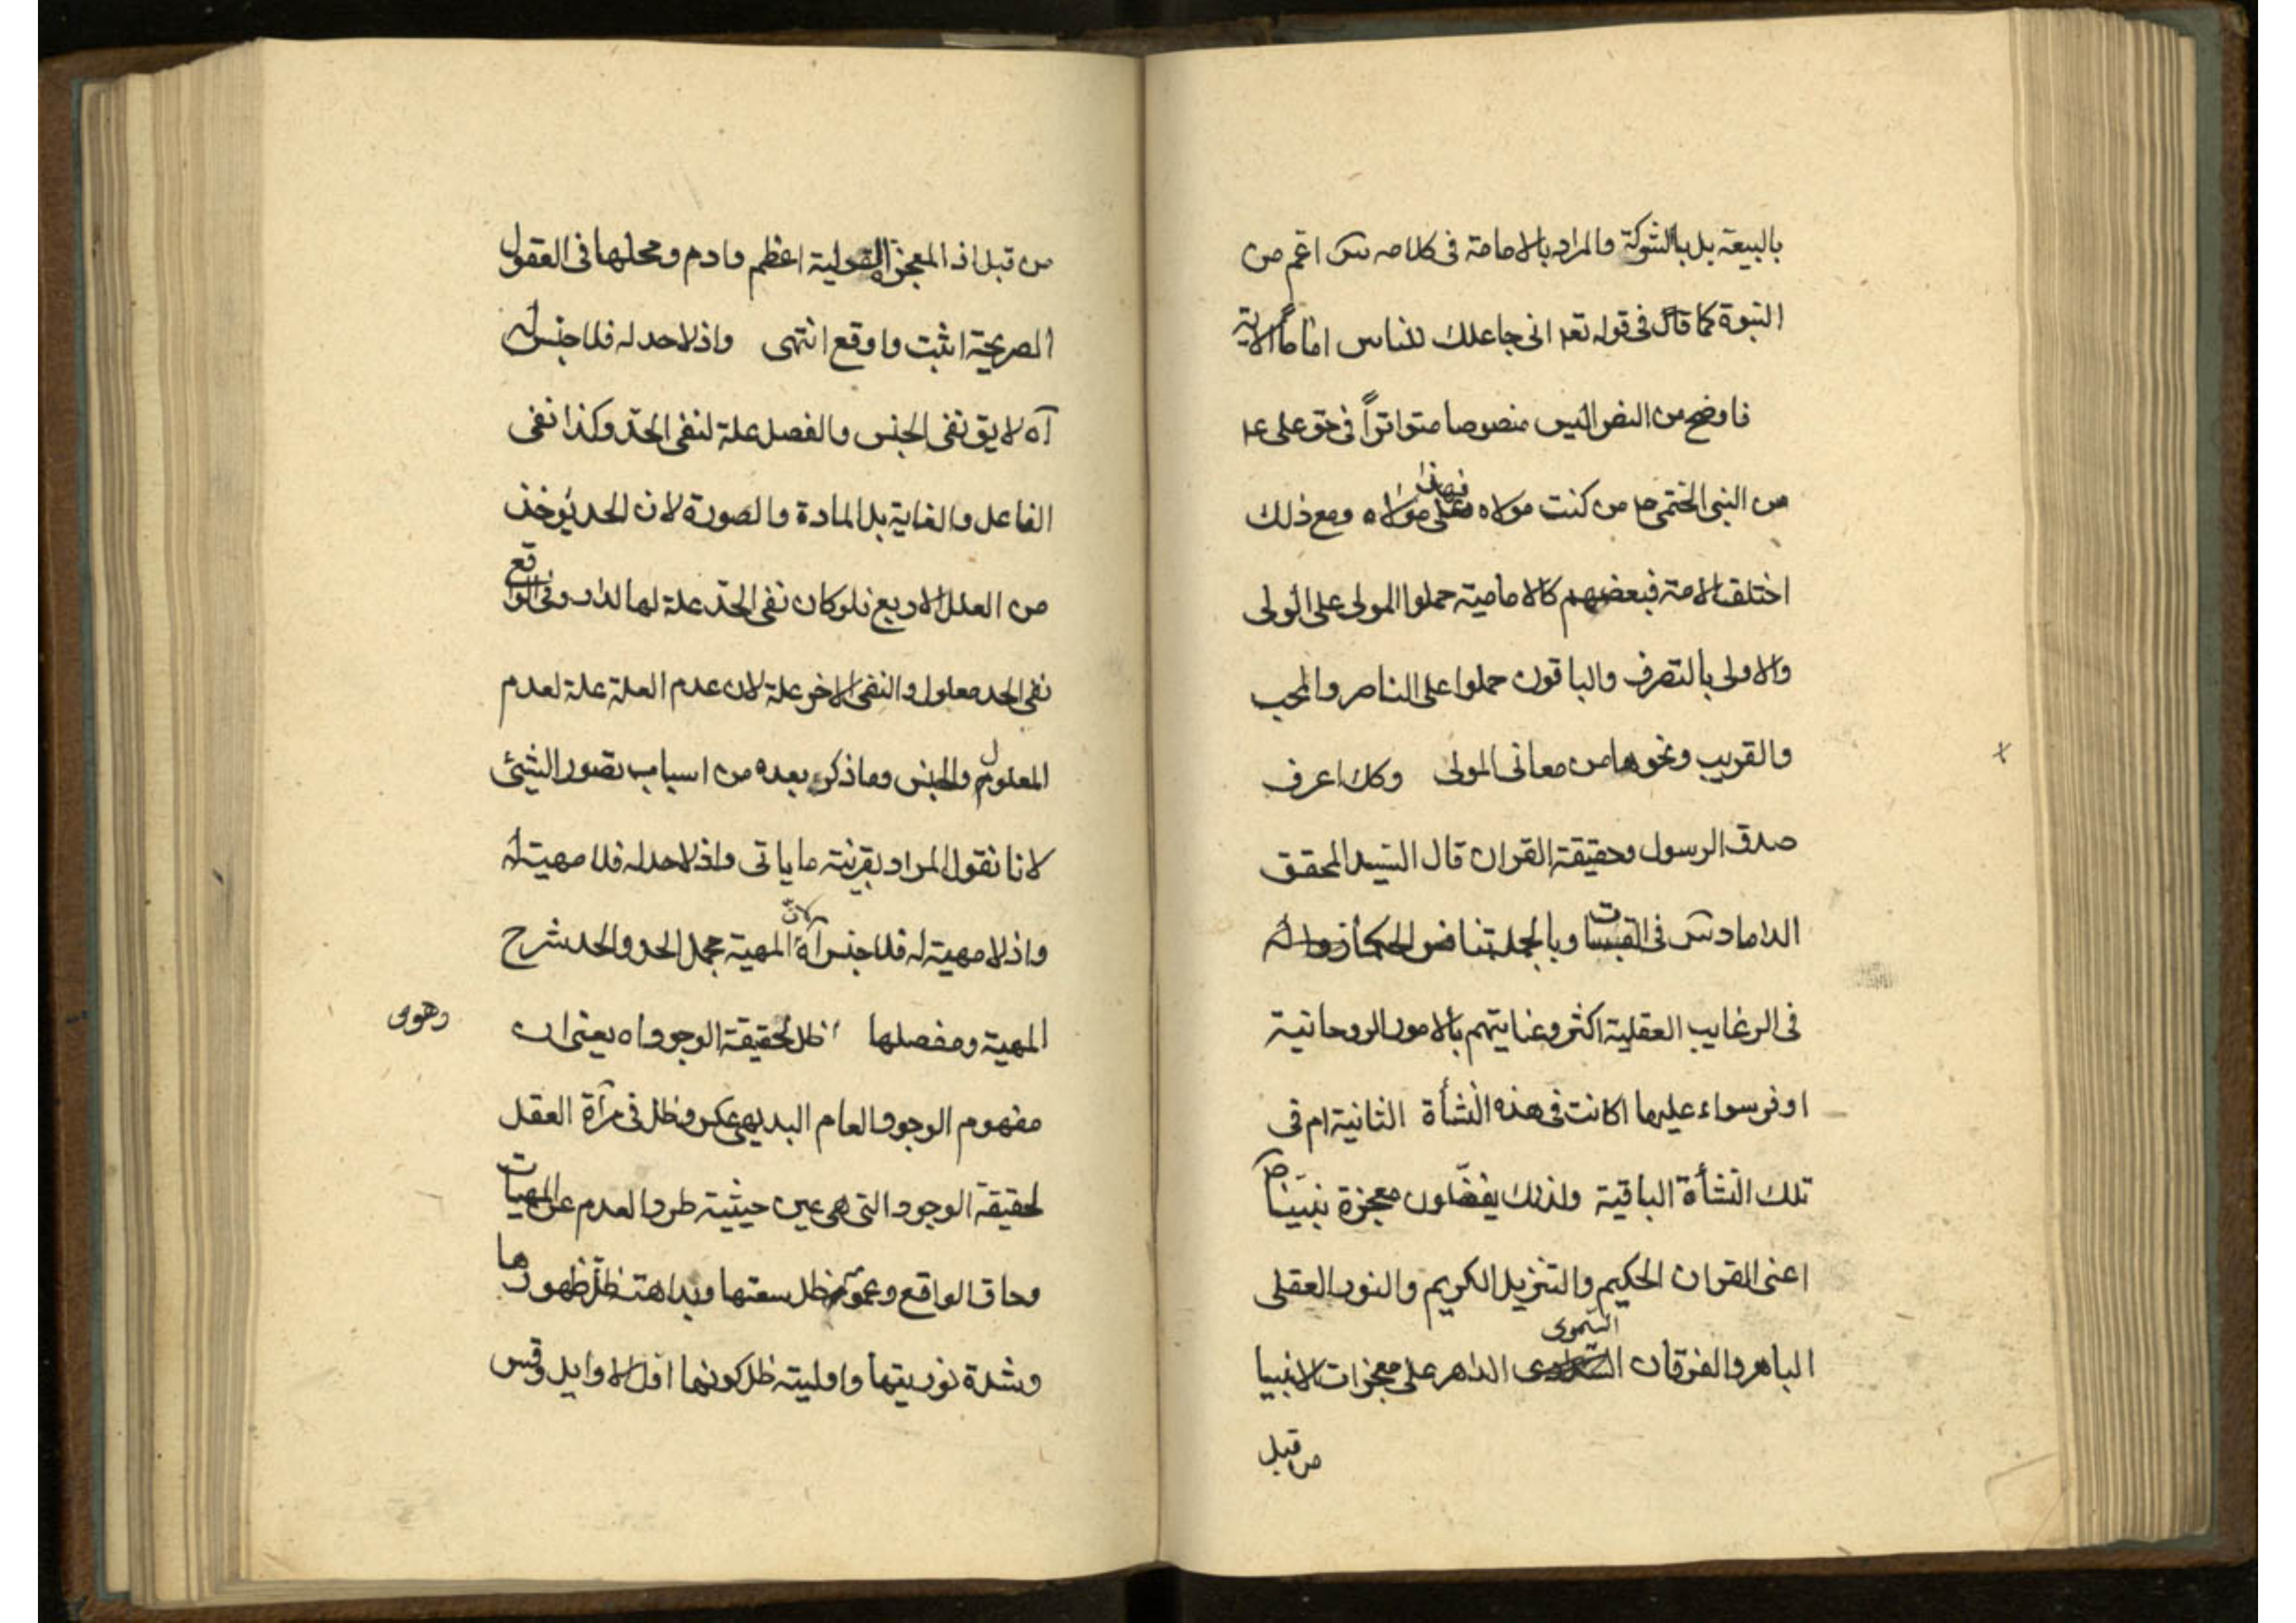 بالبيعة بل بالشوكة والمراد بالامامة فى كلامه س اعم من
النبوة كما قال فى قوله تعم انى جاعلك للناس اماماً الاية
فاوضح من النص اليس منصوصا متواتراً فى حق على ع
من النبى الختمى ص من كنت مولاه فهذا على مولاه ومع ذلك
اختلف الامة فبعضهم كالامامية حملوا المولى على الولى
والاولى بالتصرف والباقون حملوا على الناصر والمحب
والقريب ونحوها من معانى المولى وكك اعرف
صدق الرسول وحقيقة القران قال السيد المحقق
الداماد س فى القبسات وبالجملة تنافس الحكما
فى الرغايب العقلية اكثر وعنايتهم بالامور الروحانية
اوفر سواء عليها اكانت فى هذه النشأة الثانية ام فى
تلك النشأة الباقية ولذلك يفضلون معجزة نبينا ص
اعنى القران الحكيم والتنزيل الكريم والنور العقلى
الباهر والفرقان السموى الداهر على معجزات الانبيا
من قبل
من قبل اذ المعجزة القولية اعظم وادم ومحلها فى العقول
الصريحة اثبت واوقع انتهى واذ لا حد له فلا جنس له
آه لا يق نفى الجنس والفصل علة لنفى الحد وكذا نفى
الفاعل والغاية بل المادة والصورة لان الحد يؤخذ
من العلل الاربع فلو كان نفى الحد علة لها لدار وفى الواقع
نفى الحد معلول والنفى الاخر علة لان عدم العلة علة لعدم
المعلول والجنس وما ذكر بعده من اسباب تصور الشيئ
لانا نقول المراد بقرينة ما ياتى واذ لا حد له فلا مهية له
واذ لا مهية له فلا جنس آه لان المهية مجمل الحد والحد شرح
المهية ومفصلها ظل لحقيقة الوجود اه يعنى ان
وهوى
مفهوم الوجود العام البديهى عكس وظل فى مرآة العقل
لحقيقة الوجود التى هى عين حيثية طرد العدم عن المهيات
وحاق الواقع وعمومه ظل سعتها وبداهته ظل ظهورها
وشدة نوريتها واوليته ظل كونها اول الاوايل وقس